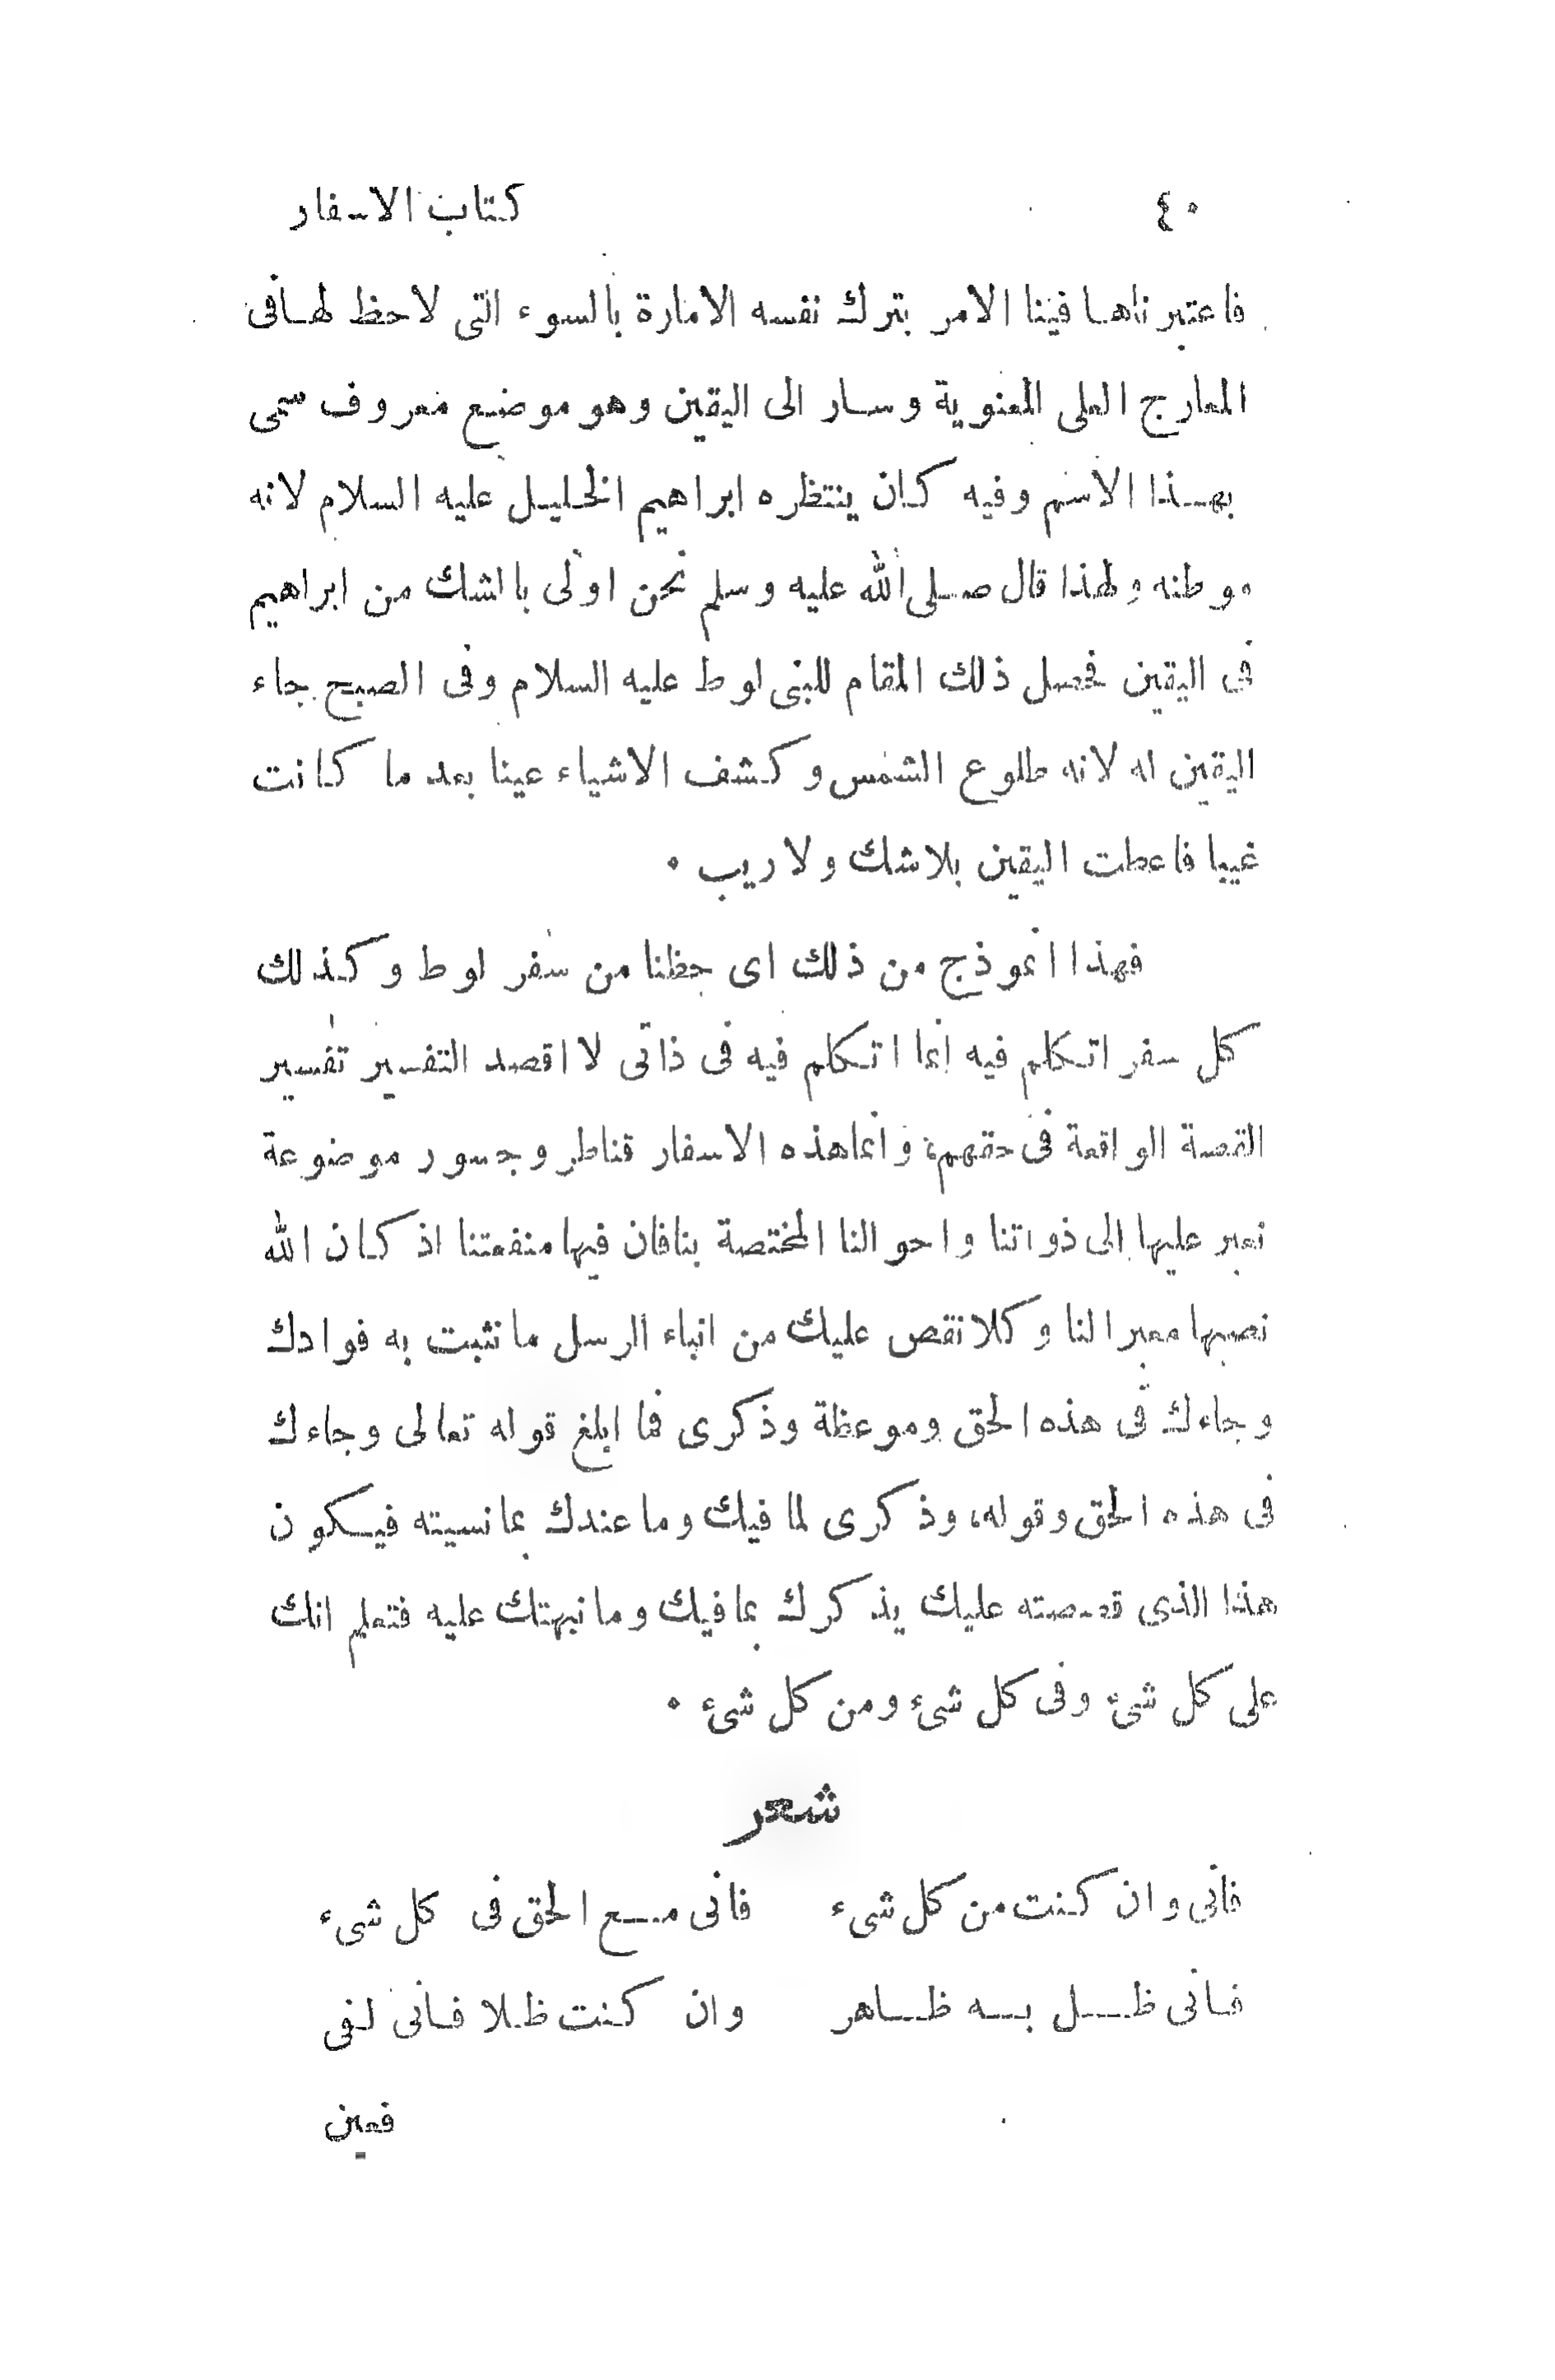 ٤٠ كتاب الاسفار
فاعتبرناها فينا الامر بترك نفسه الامارة بالسوء التى لاحظ لها فى
المعارج العلى المعنوية وسار الى اليقين وهو موضع معروف سمى
بهذا الاسم وفيه كان ينتظره ابراهيم الخليل عليه السلام لانه
موطنه ولهذا قال صلى الله عليه وسلم نحن اولى بالشك من ابراهيم
فى اليقين فحصل ذلك المقام للنبى لوط عليه السلام وفى الصبح جاء
اليقين له لانه طلوع الشمس وكشف الاشياء عينا بعد ما كانت
غيبا فاعطت اليقين بلاشك ولا ريب ٠
فهذا انموذج من ذلك اى حظنا من سفر لوط وكذلك
كل سفر اتكلم فيه انما اتكلم فيه فى ذاتى لا اقصد التفسير تفسير
القصة الواقعة فى حقهم، وانما هذه الاسفار قناطر وجسور موضوعة
نعبر عليها الى ذواتنا واحوالنا المختصة بنا فان فيها منفعتنا اذ كان الله
نصبها معبرا لنا وكلا نقص عليك من انباء الرسل ما نثبت به فوادك
وجاءك فى هذه الحق وموعظة وذكرى فما ابلغ قوله تعالى وجاءك
فى هذه الحق وقوله، وذكرى لما فيك وما عندك بما نسيته فيكون
هذا الذى قصصته عليك يذكرك بما فيك وما نبهتك عليه فتعلم انك
على كل شىء وفى كل شىء ومن كل شىء ٠
شعر
فانى وان كنت من كل شىء فانى مع الحق فى كل شىء
فانى ظل به ظاهر وان كنت ظلا فانى لفى
فعين